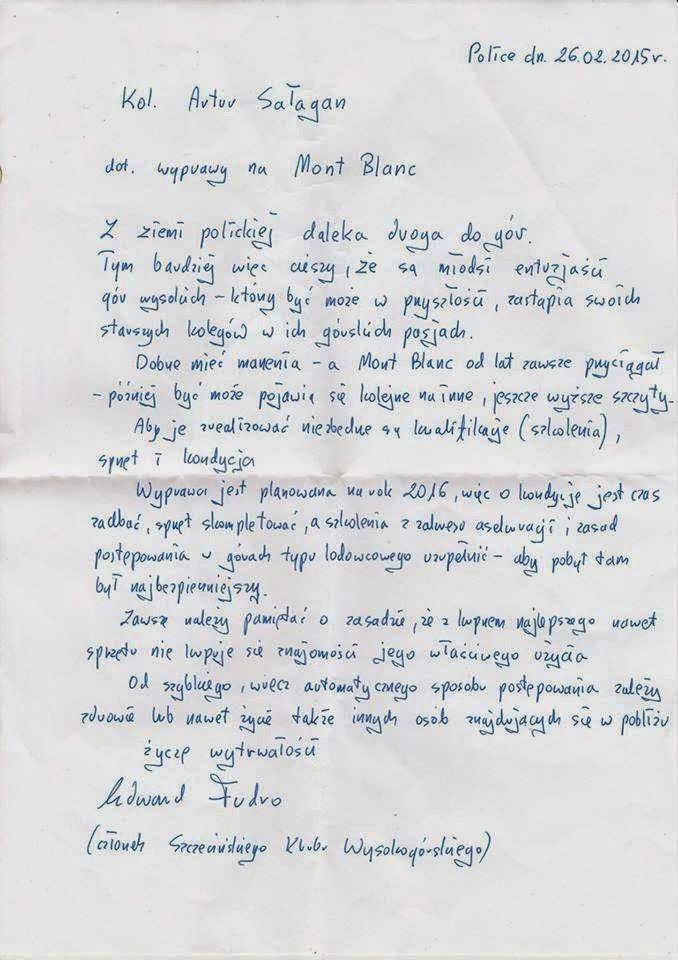 Police dn. 26.02.2015r.
Kol. Artur Sałagan
dot. wyprawy na Mont Blanc
Z ziemi polickiej daleka droga do gór.
Tym bardziej więc cieszy, że są młodsi entuzjaści
gór wysokich - którzy być może w przyszłości, zastąpią swoich
starszych kolegów w ich górskich pasjach.
Dobrze mieć marzenia - a Mont Blanc od lat zawsze przyciągał
- później być może pojawią się kolejne na inne, jeszcze wyższe szczyty.
Aby je zrealizować niezbędne są kwalifikacje (szkolenia),
sprzęt i kondycja
Wyprawa jest planowana na rok 2016, więc o kondycję jest czas
zadbać, sprzęt skompletować, a szkolenia z zakresu asekuracji i zasad
postępowania w górach typu lodowcowego uzupełnić - aby pobyt tam
był najbezpieczniejszy.
Zawsze należy pamiętać o zasadzie, że z kupnem najlepszego nawet
sprzętu nie kupuje się znajomości jego właściwego użycia
Od szybkiego, wręcz automatycznego sposobu postępowania zależy
zdrowie lub nawet życie także innych osób znajdujących się w pobliżu
życzę wytrwałości
Edward Fudro
(członek Szczecińskiego Klubu Wysokogórskiego)